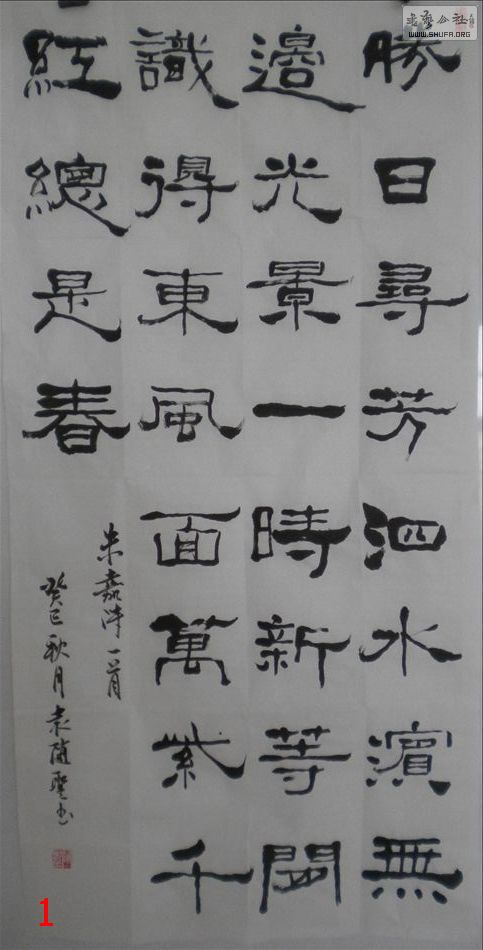 勝日尋芳泗水濱無
邊光景一時新等閒
識得東風面萬紫千
紅總是春
朱熹詩一首
癸巳秋月袁随聖书
書藝公社
WWW.SHUFA.ORG
1